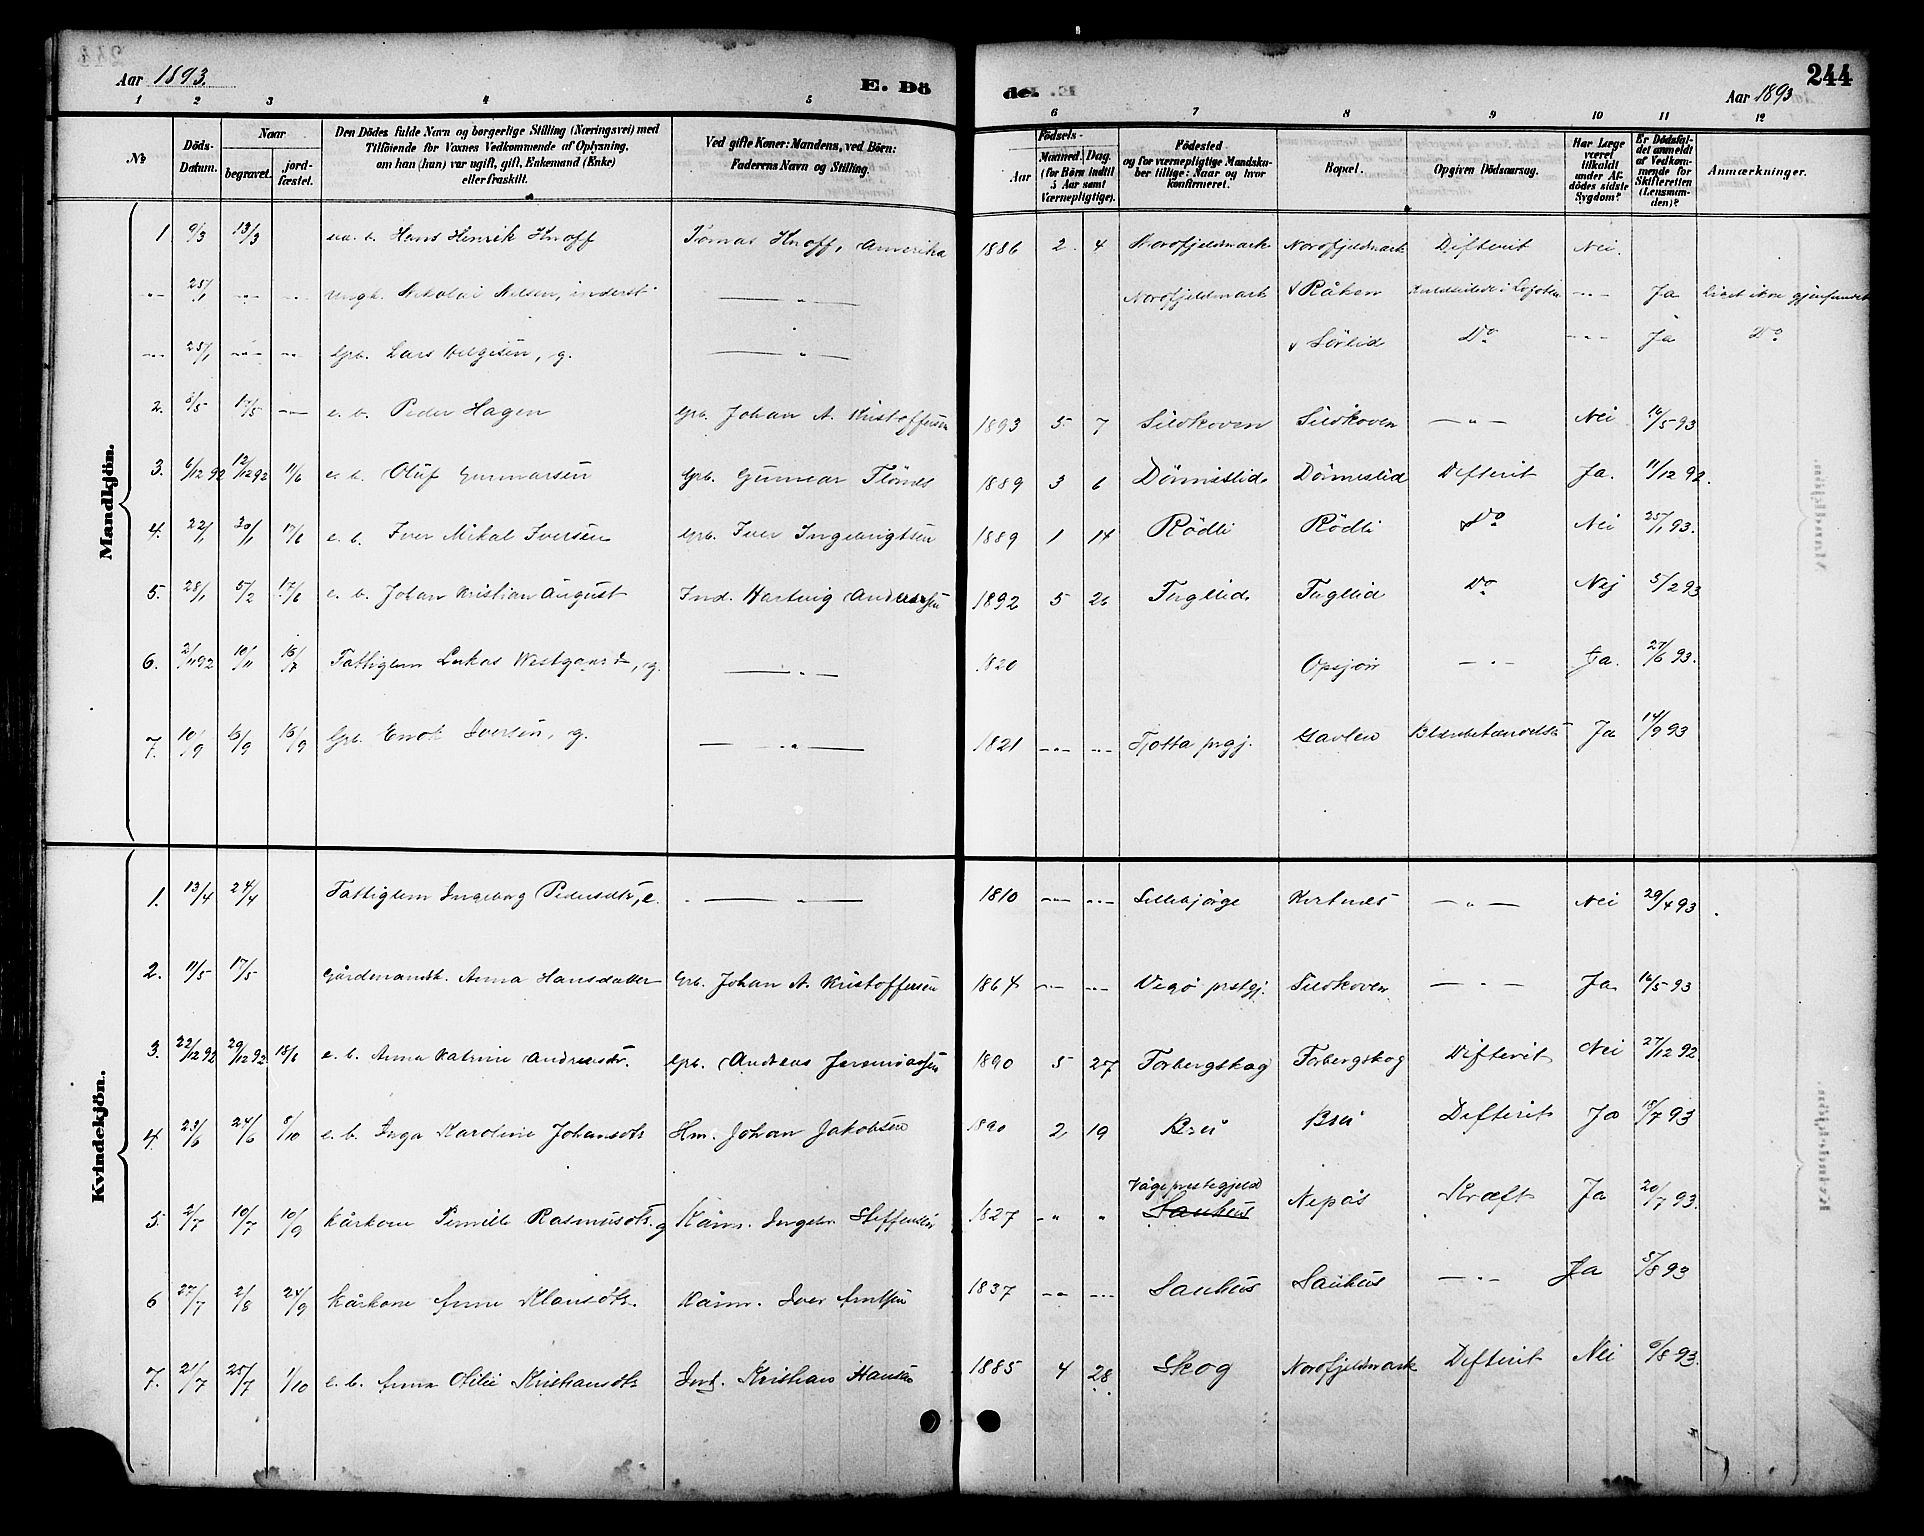 244
Aar 1893.
E. Dö
de. E.
Aar 1893
1 2 3 4 5 6 7 8 9 10 11 12
№
Döds-Datum.
Naar
begravet.
jord-fæstet.
Den Dödes fulde Navn og borgerlige Stilling (Næringsvei) med
Tilföiende for Voxnes Vedkommende af Oplysning,
om han (hun) var ugift, gift, Enkemand (Enke)
eller fraskilt.
Ved gifte Koner: Mandens, ved Börn:
Faderens Navn og Stilling.
Födsels-
Aar
Maaned. Dag.
(for Börn indtil
5 Aar samt
Værnepligtige).
Födested
og for værnepligtige Mandska-
ber tillige: Naar og hvor
konfirmeret.
Bopæl.
Opgiven Dödsaarsag.
Har Læge
været
tilkaldt
under Af-
dödes sidste
Sygdom?
Er Dödsfal-
det anmeldt
af Vedkom-
mende for
Skifteretten
(Lensman-
den)?
Anmærkninger.
Mandkjön.
1 9/3 13/3 Hans Henrik Knoff Tomas Knoff, Amerika 1886 2 4 Nordfjeldmark Nordfjeldmark Difterit Nei.
-"- 25/1 -"- -"- Ungk. Nikolai Nilsen, inderst -"- Nordfjeldmark v Råken i Lofoten -"- Ja Liget ikke gjenfundet
-"- 25/1 -"- -"- Grb. Lars Helgesen, g. -"- v Sörlid Do -"- Ja Do
2. 8/5 17/5 -"- e. b. Peder Hagen Grb. Johan A. Kristoffersen 1893 5 7 Sildkoven Sildkoven -"- Nei 16/5 93
3. 6/12 92 12/12 92 11/6 e. b. Oluf Gunnarsen Grb. Gunnar Flönes 1889 3 6 Dönneslid Dönneslid Difterit Ja. 11/12 92.
4. 22/1 30/1 17/6 e. b. Iver Mikal Iversen Grb. Iver Ingebrigtsen 1889 1 14 Rödli Rödli Do Nei 25/1 93.
5. 28/1 5/2 17/6 e. b. Johan Kristian August Ind. Hartvig Andersen 1892 5 26 Fugllid Fuglid Do Nej 5/2 93
6. 2/11 92 10/11 16/7 Fattiglem Lukas Westgaard, g. -"- 1820 Opsjön -"- Ja. 27/6 93.
7. 10/9 16/9 Grb. Enok Iversen, g. -"- 1821 -"- -"- Tjotta prgj. Gavlen Ja 14/9 93
Kvindekjön.
1. 13/4 24/4 Fattiglem Ingeborg Pedersdtr, e. -"- 1810 -"- -"- Lillebjörge -"- Nei 29/4 93
2. 11/5 17/5 Gårdmandsk. Anna Hansdatter Grb. Johan A. Kristoffersen 1864 -"- -"- Vegö prstgj. Sildkoven -"- Ja 16/5 93
3. 22/12 92 29/12 92 18/6 e. b. Anna Katrine Andreasdtr. Grb. Andreas Jeremiassen 1890 5 27 Forbergskog Forbergskog Difterit Nei 27/12 92
4. 23/6 24/6 8/10 e. b. Inga Karoline Johansdtr Hm. Johan Jakobsen 1890 2 19 Brei Brei Difterit Ja 18/7 93
5. 2/7 10/7 10/9 Kårkone Pernille Rasmusdtr. g Kårm. Ingebr. Steffensen 1827 -"- " Våge prestegjeld
Sauhus Nepås Kræft Ja 20/7 93.
6 27/7 2/8 24/9 Kårkone Anne Klausdtr. Kårm. Iver Arntsen 1837 -"- -"- Sauhus Sauhus -"- Ja 5/8 93
7. 21/7 25/7 1/10 e. b. Anna Otilie Kristiansdtr Ind. Kristian Hansen 1885 4 28 Skog Nordfjeldmark Difterit Nei 6/8 93.